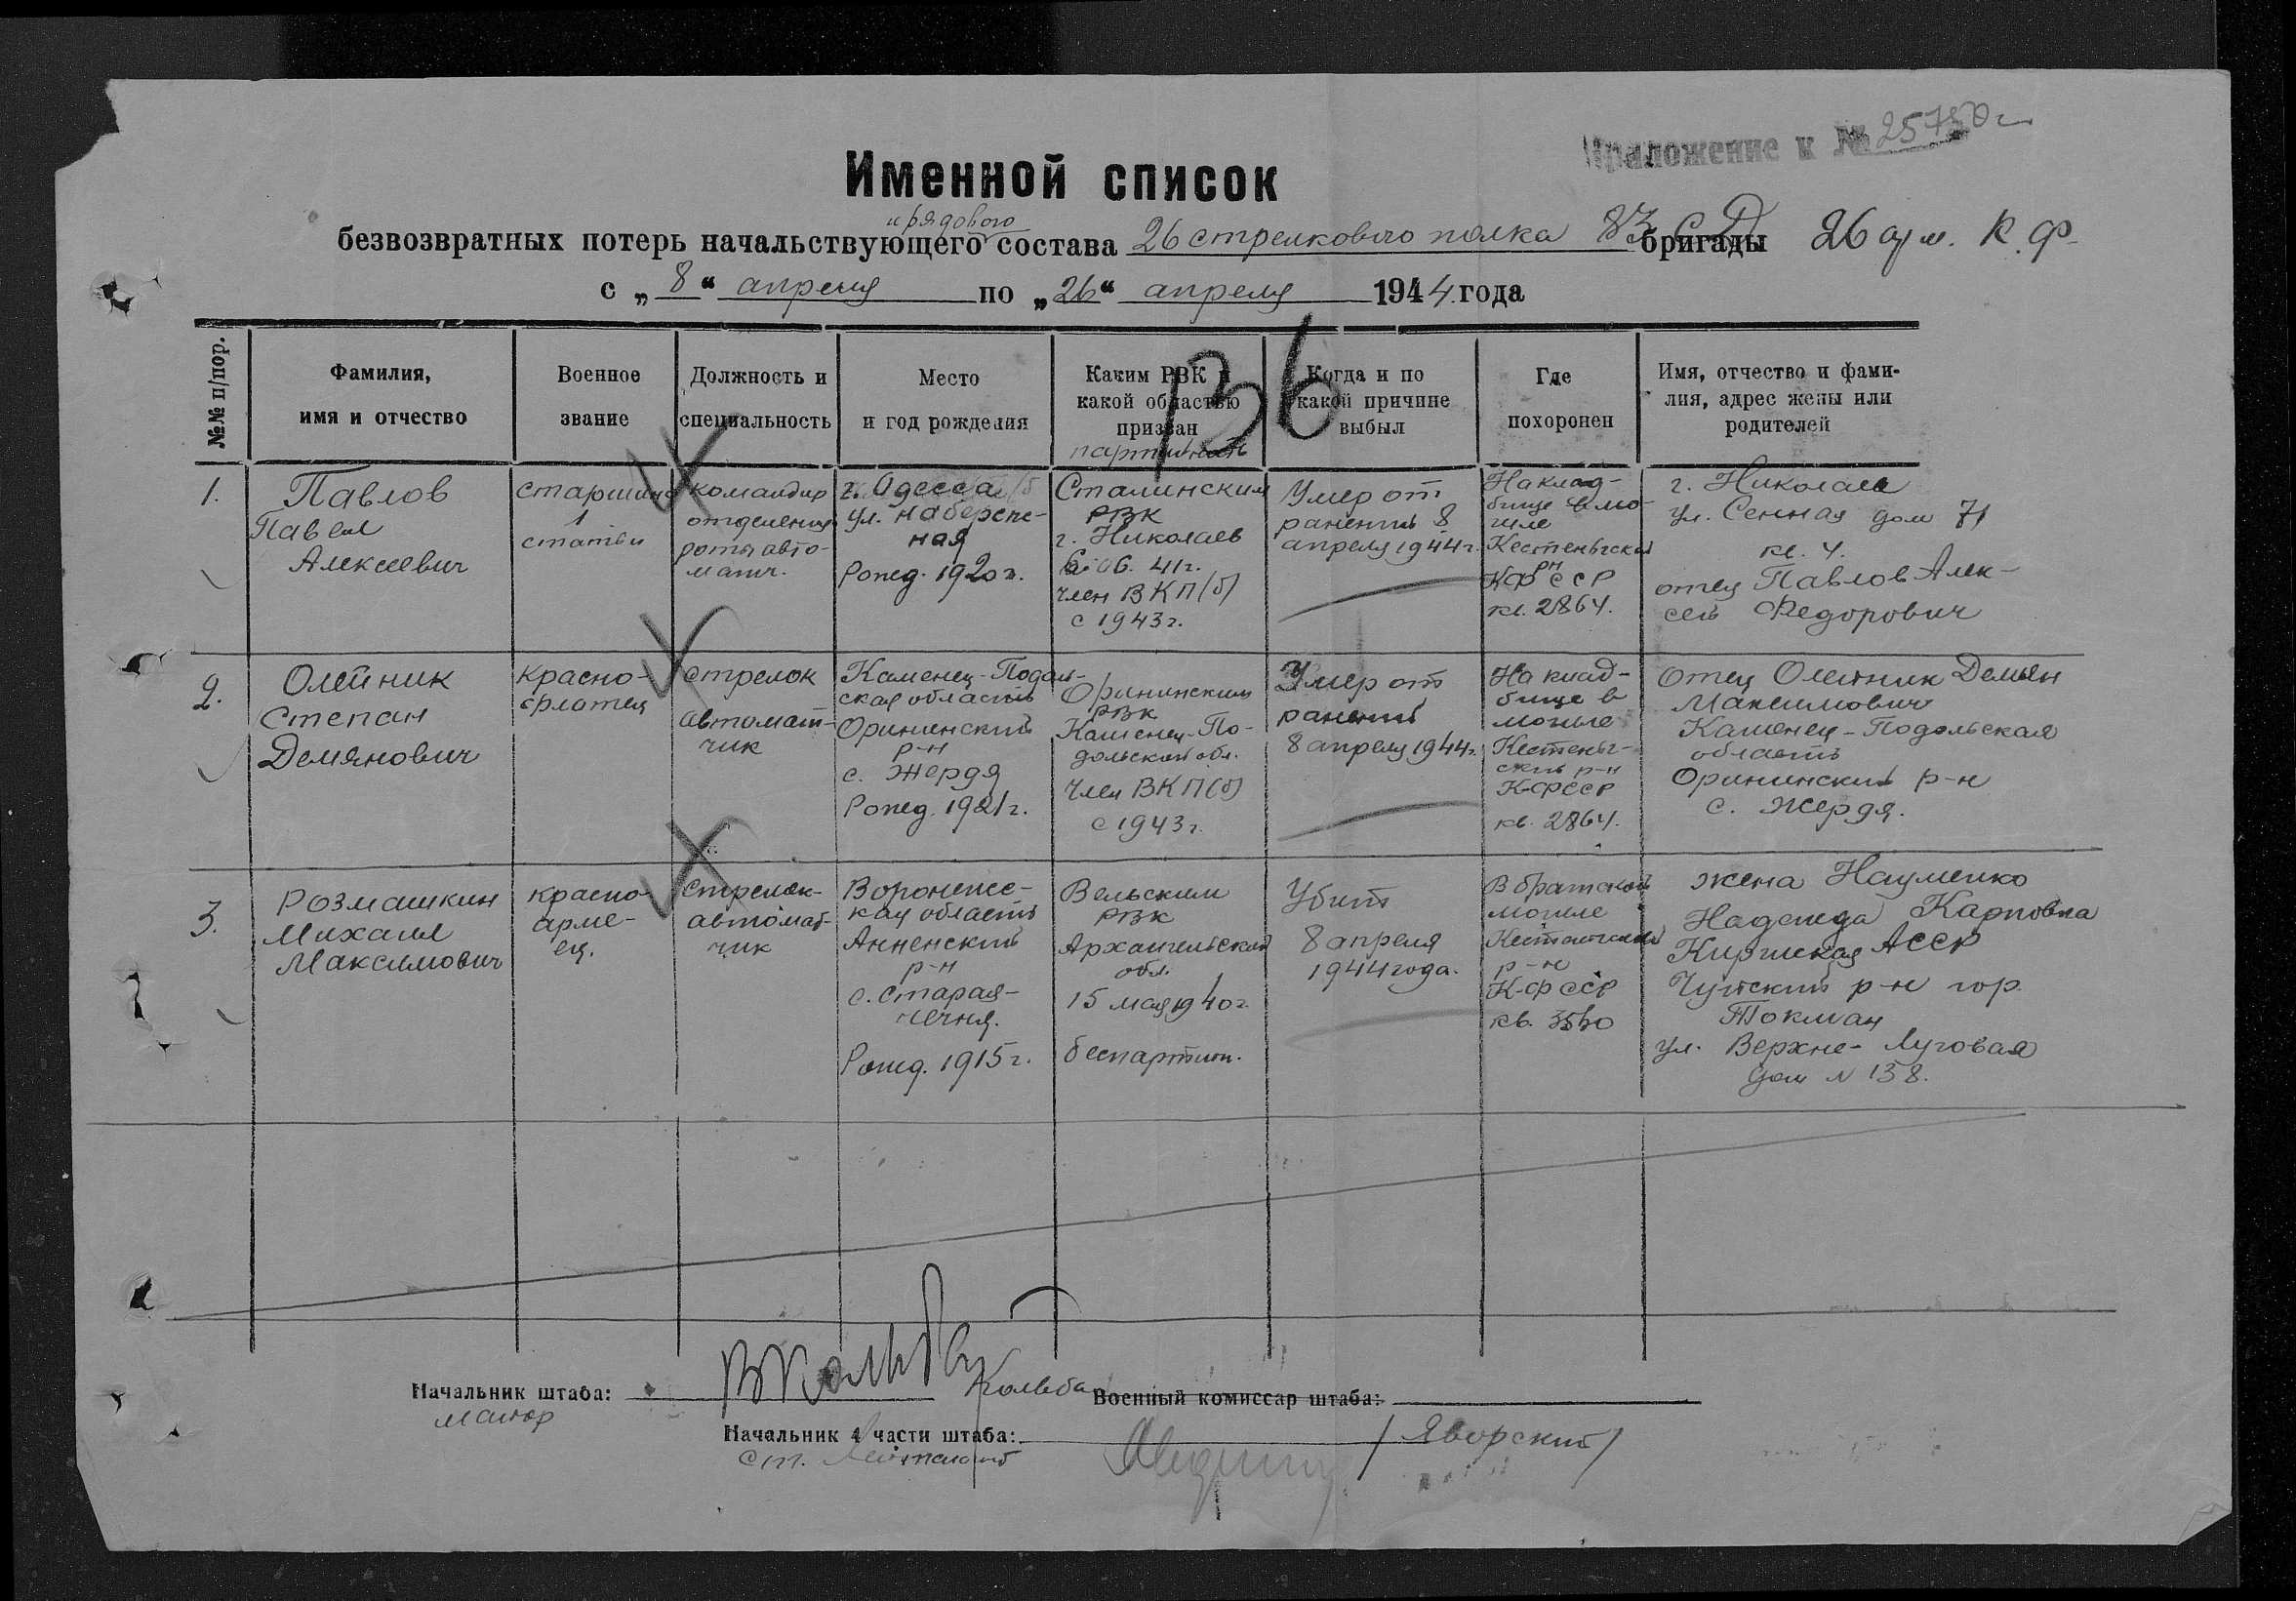 Приложение к № 25750
Именной список
и рядового
безвозвратных потерь начальствующего состава 26 стрелкового полка 83 СД бригады 26 арм. К.Ф.
с „8“ апреля по „26“ апреля 1944 года
136
№№ п/пор.
Фамилия,
имя и отчество
Военное
звание
Должность и
специальность
Место
и год рождения
Каким РВК и
какой областью
призван
партийность
Когда и по
какой причине
выбыл
Где
похоронен
Имя, отчество и фами-
лия, адрес жены или
родителей
1.
Павлов
Павел
Алексеевич
старшина
1
статьи
командир
отделения
роты авто-
матч.
г. Одесса
ул. Набереж-
ная
Рожд. 1920 г.
Сталинским
РВК
г. Николаев
6.06.41г.
член ВКП(б)
с 1943г.
Умер от
ранений 8
апреля 1944г.
На клад-
бище в мо-
гиле
Кестеньгский
рн
КФССР
кв. 2864.
г. Николаев
ул. Сенная дом 71
кв. 4.
отец Павлов Алек-
сей Федорович
2.
Олейник
Степан
Демянович
красно-
флотец
стрелок
автомат-
чик
Каменец-Подоль-
ская область
Орининский
р-н
с. Жердя
Рожд. 1921г.
Орининским
РВК
Каменец-По-
дольской обл.
Член ВКП(б)
с 1943г.
Умер от
ранений
8 апреля 1944г.
На клад-
бище в
могиле
Кестеньг-
ский р-н
К-ФССР
кв. 2864.
Отец Олейник Демьян
Максимович
Каменец-Подольская
область
Орининский р-н
с. Жердя.
3.
Розмашкин
Михаил
Максимович
красно-
арме-
ец.
Стрелок-
автомат-
чик
Воронежс-
кая область
Анненский
р-н
с. Старая-
чечня.
Рожд. 1915г.
Вельским
РВК
Архангельской
обл.
15 мая 1940г.
беспартийн.
Убит
8 апреля
1944 года.
В братской
могиле
Кестеньгский
р-н
К-ФССР
кв. 3540
жена Науменко
Надежда Карповна
Киргиская АССР
Чуйский р-н гор.
Токмак
ул. Верхне-Луговая
дом № 138.
Начальник штаба:
майор
Кольба
Военный комиссар штаба:
Начальник 4 части штаба:
ст. лейтенант
/Яворский/